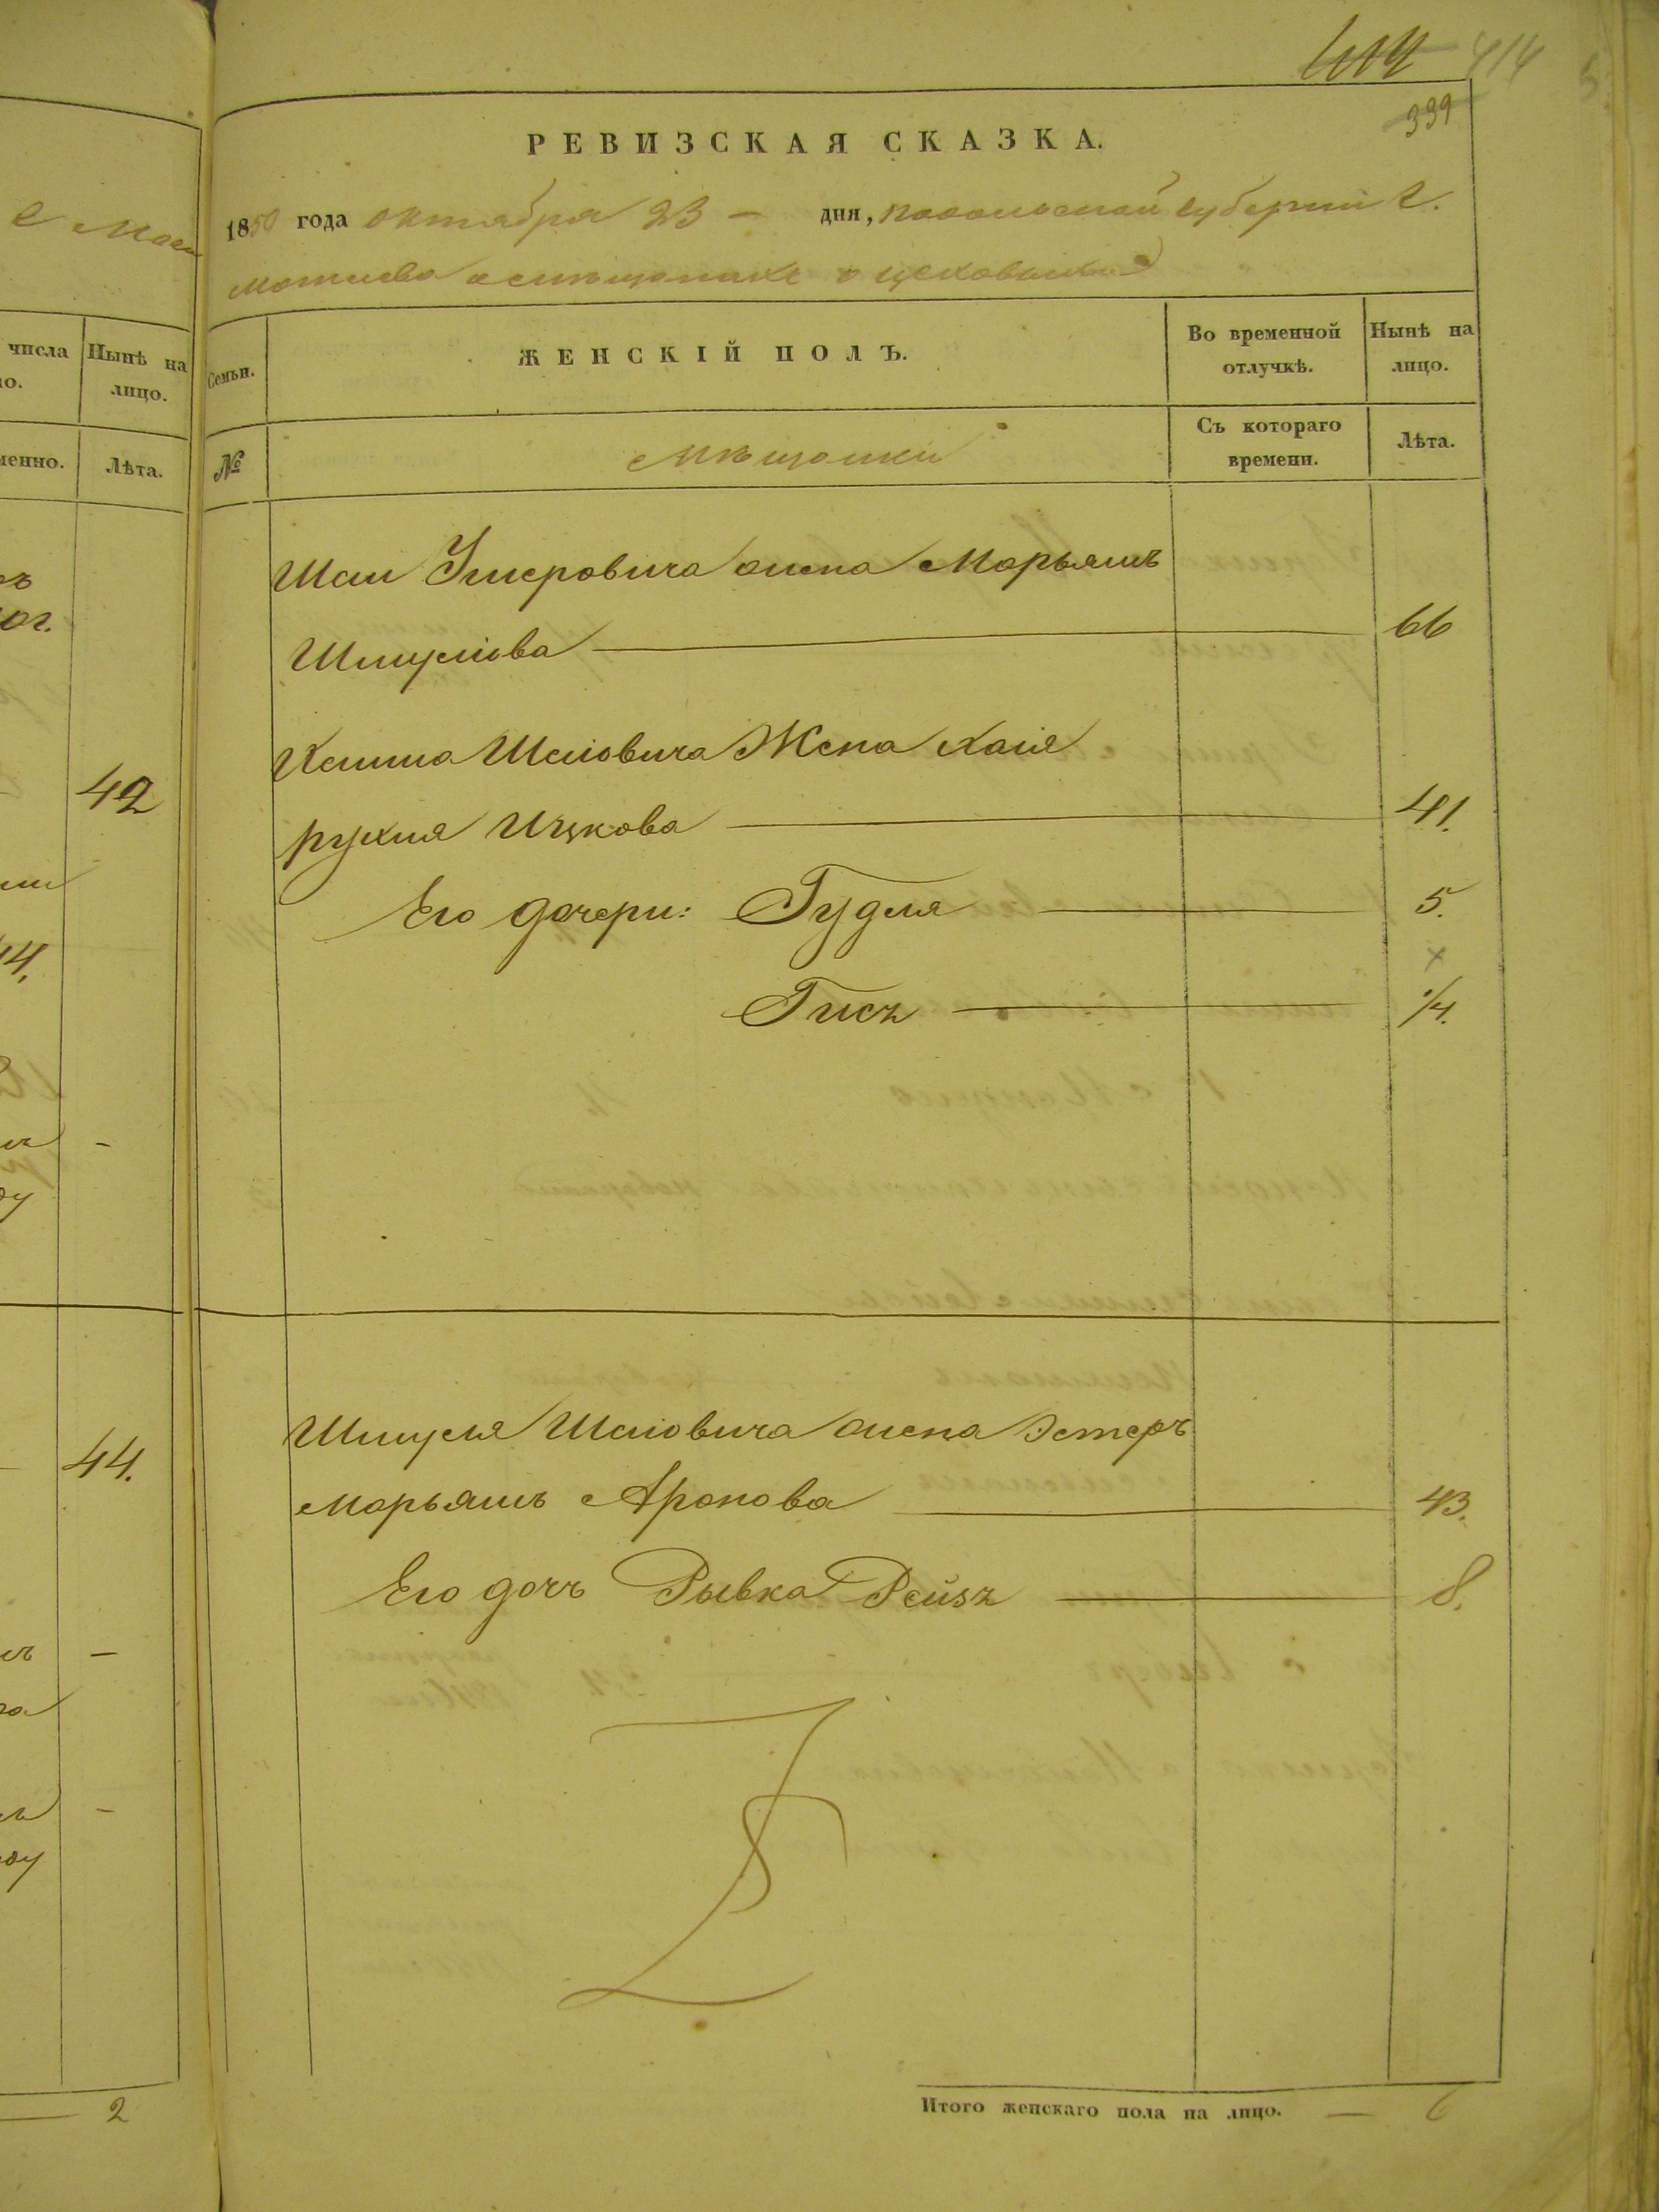 414
339
РЕВИЗСКАЯ СКАЗКА.
1850 года октября 23 — дня, Подольской губерніи г.
Могилева о мѣщанахъ и цеховыхъ
Семьи.
ЖЕНСКІЙ ПОЛЪ.
Во временной отлучкѣ.
Нынѣ на лицо.
№
Мѣщанки
Съ котораго времени.
Лѣта.
Шаи жена Марьямъ
Шмулiова — 66
Шаiовича Жена Хаiя
рухля Ицкова — 41.
Его дочери: Гудля — 5.
Гися — 1/4.
Шмуля Шаiовича жена Эстеръ
Марьямъ Аронова — 43.
Его дочь Рывка Рейзя — 8.
Итого женскаго пола на лицо. — 6
числа
Нынѣ на лицо.
Лѣта.
42
44.
2